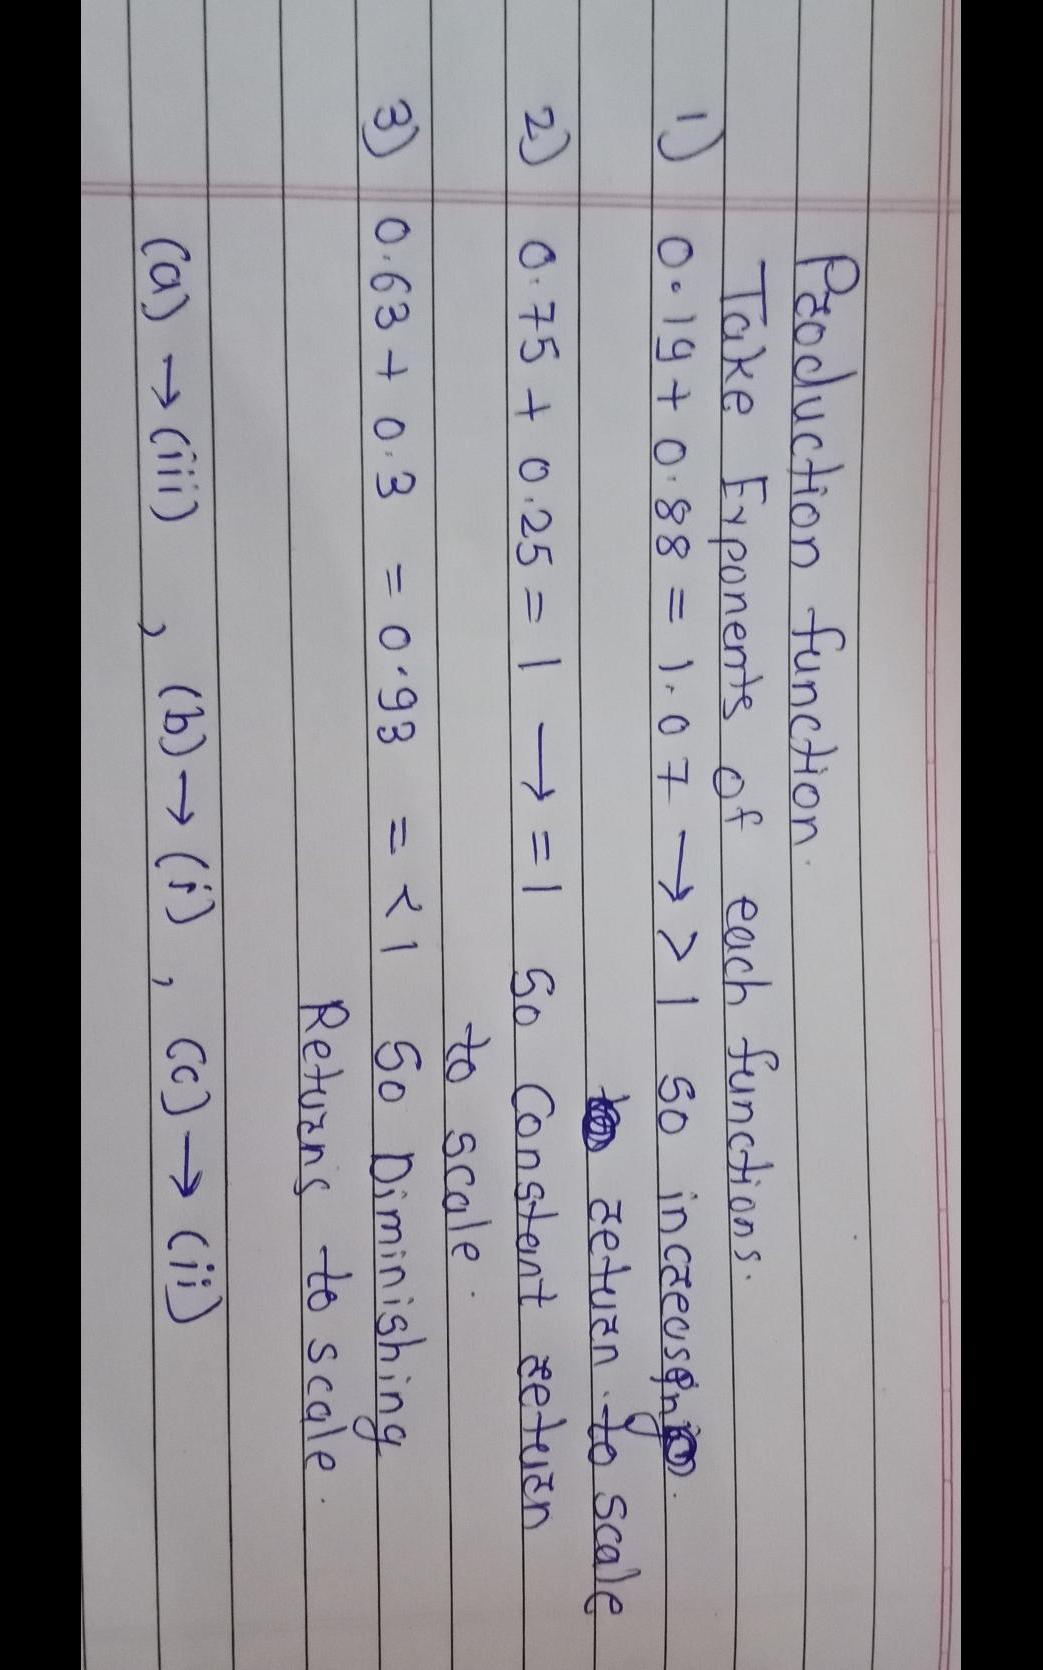 Production function.
Take Exponents of each functions.
1) 0.19 + 0.88 = 1.07 → > 1 so increasing.
return to scale
2) 0.75 + 0.25 = 1 → = 1 So Constant return
to scale.
3) 0.63 + 0.3 = 0.93 = < 1 So Diminishing
Returns to scale.
(a) → (iii) , (b) → (i) , (c) → (ii)